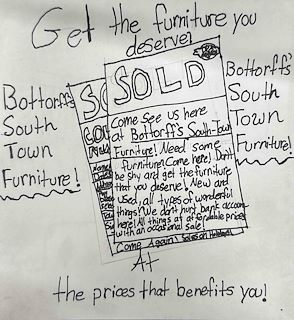 Get the furniture you
deserve!
Bottorff's
South
Town
Furniture!
SOLD
Come See us here
at Bottorff's South-Town
Furniture! Need some
furniture? Come here! Don't
be shy and get the furniture
that you deserve! New and
used, all types of wonderful
things! We don't hurt bank accounts
here! All things at affordable prices
with an occasional sale!
Come Again!
Bottorff's
South
Town
Furniture!
At
the prices that benefits you!